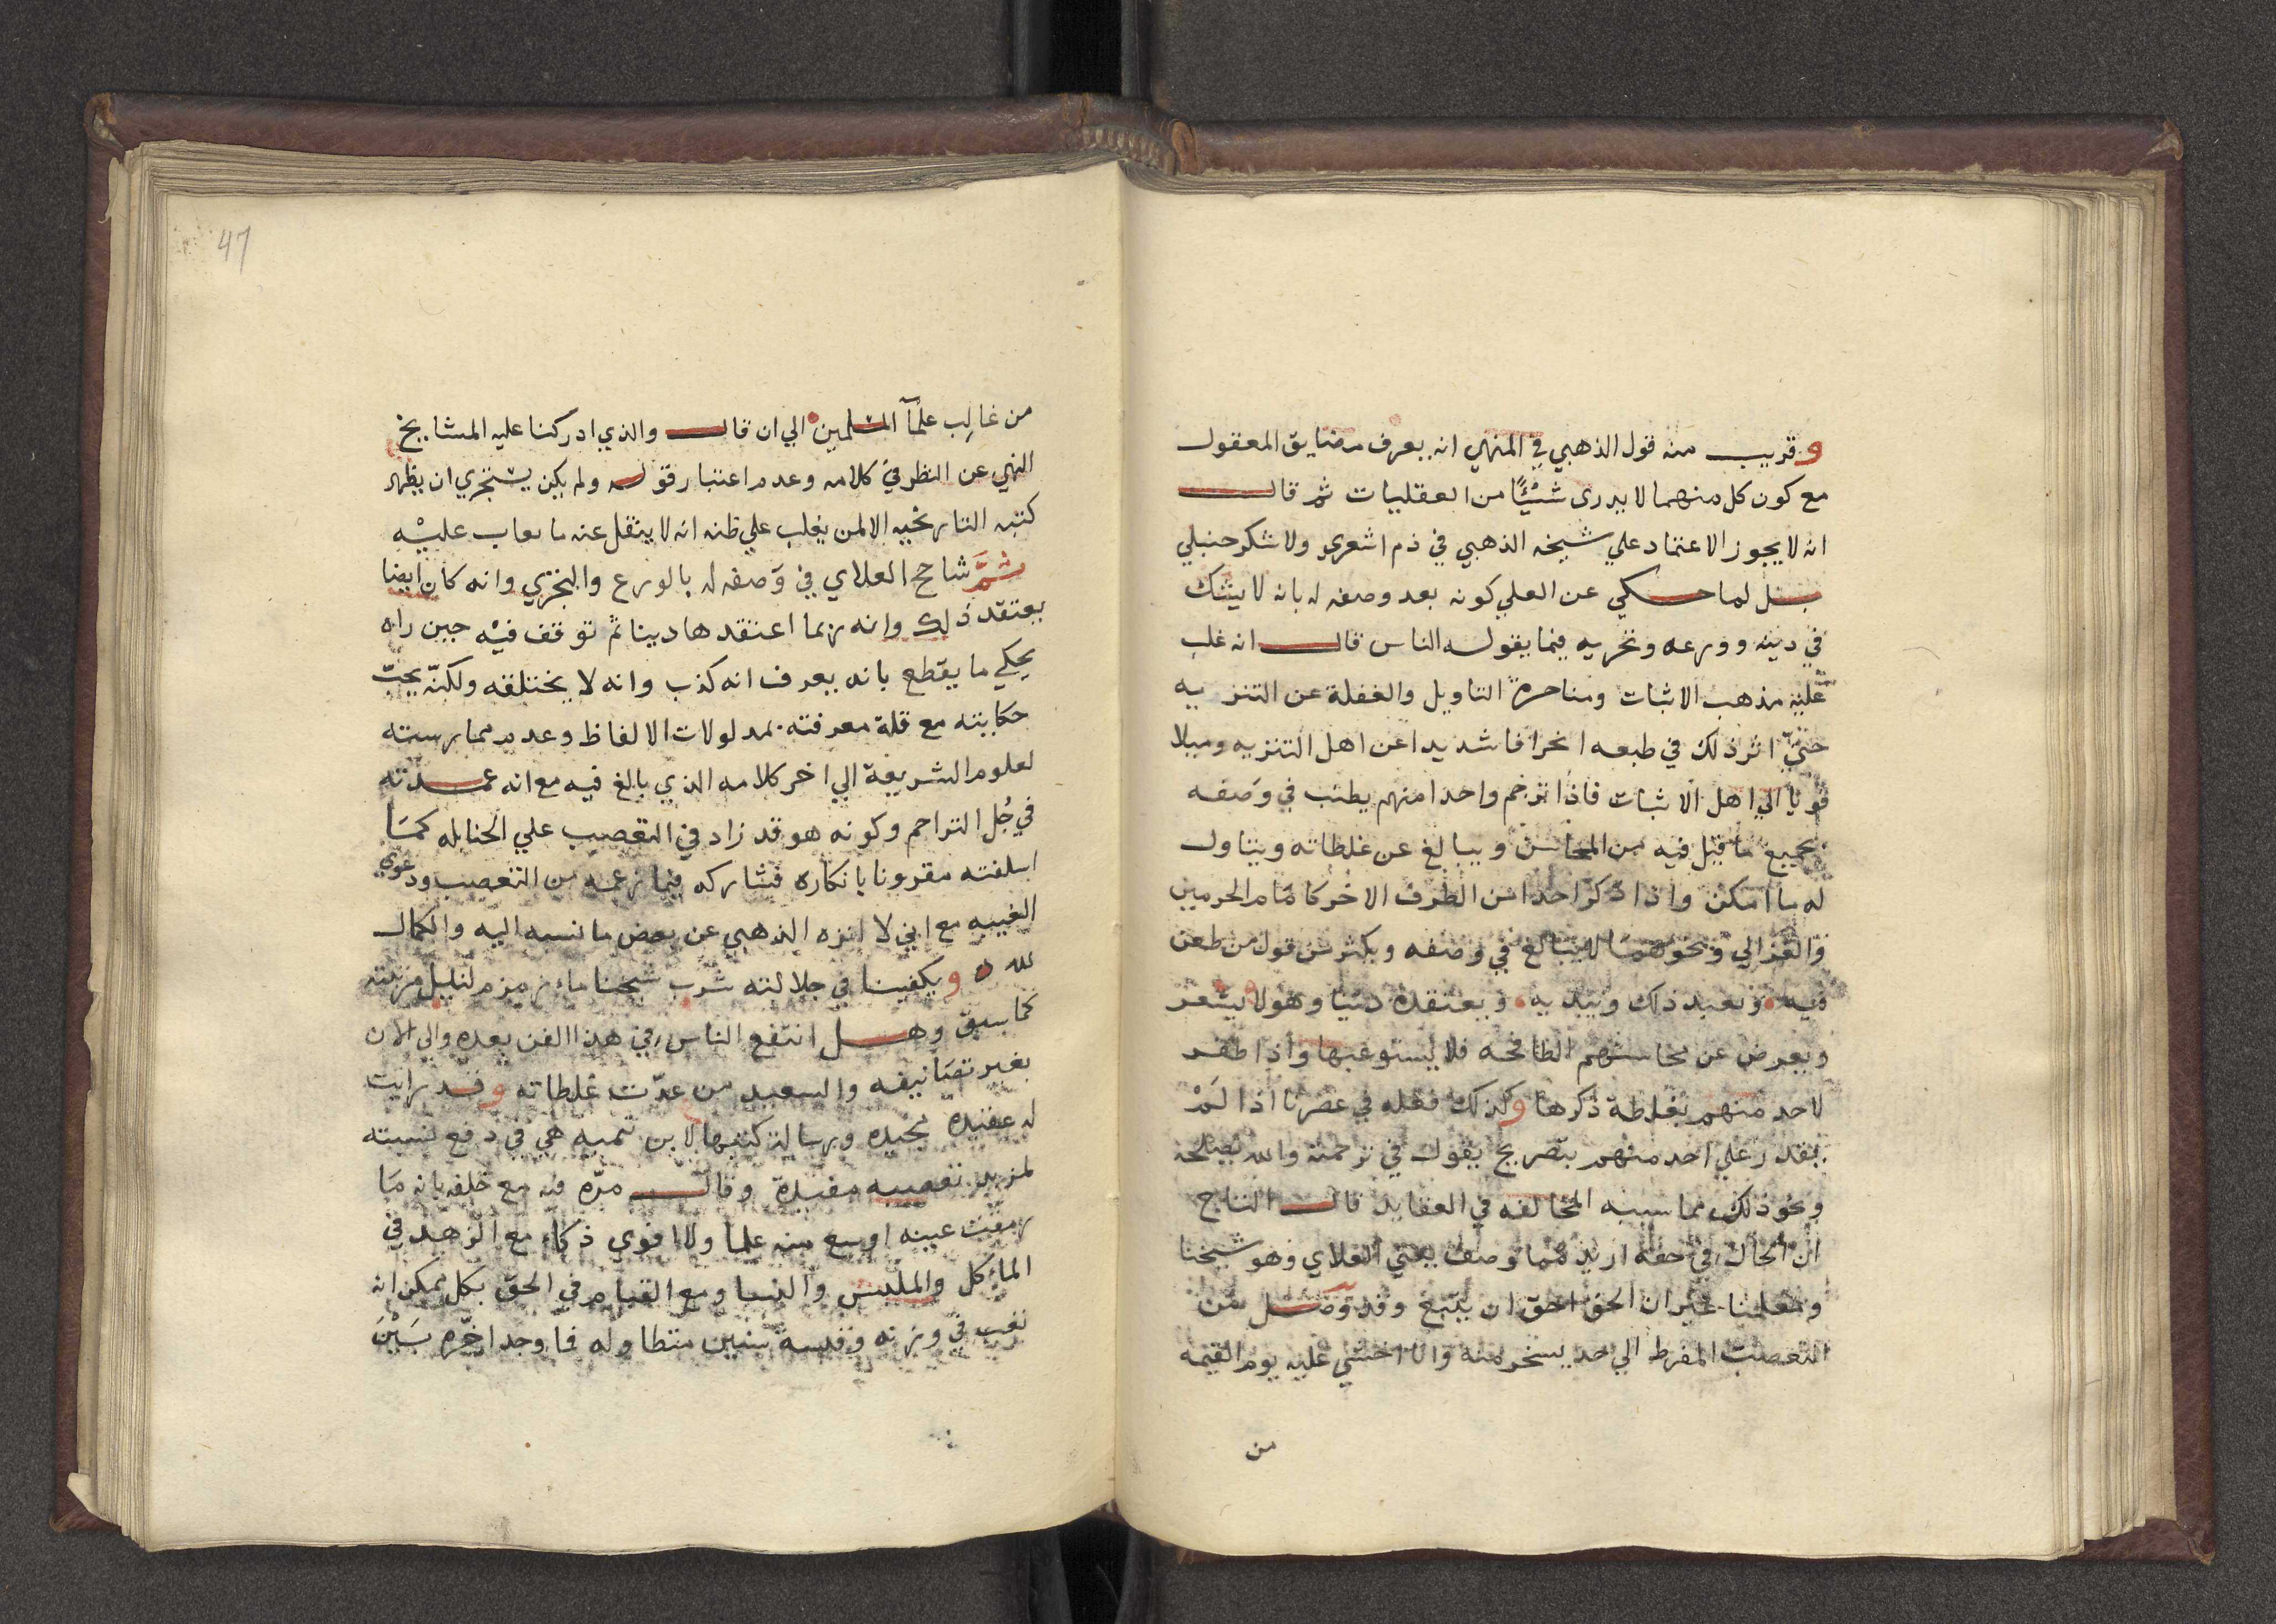 وقريب منه قول الذهبي في المنهي انه يعرف مضايق المعقول
مع كون كل منهما لا يدرى شيئًا من العقليات ثم قال
انه لا يجوز الاعتماد علي شيخه الذهبي في ذم اشعري ولا شكر حنبلي
بل لما حكي عن العلي كونه بعد وصفه له بانه لا يشك
في دينه وورعه وتحريه فيما يقوله الناس قال انه غلب
عليه مذهب الاثبات ومنافرة التاويل والغفلة عن التنزيه
حتي اثر ذلك في طبعه انحرافا شديدا عن اهل التنزيه وميلا
قويا الي اهل الاثبات فاذا ترجم واحدا منهم يطنب في وصفه
بجميع ما قيل فيه من المحاسن ويبالغ عن غلطاته ويتاول
له ما امكن واذا ذكر احدا من الطرف الاخر كامام الحرمين
والغزالي ونحوهما لا يبالغ في وصفه ويكثر من قول من طعن
فيه ويعيد ذلك ويبديه ويعتقده دينا وهو لا يشعر
ويعرض عن محاسنهم الطافحه فلا يستوعبها واذا ظفر
لاحد منهم بغلطة ذكرها وكذلك فعله في عصرنا اذا لم
يقدر علي احد منهم بتصريح يقول في ترجمته والله يصلحه
ونحو ذلك مما سببه المخالفه في العقايد قال التاج
ان الحال في حقه ازيد مما وصف يعني العلاي وهو شيخنا
ومعلمنا غير ان الحق احق ان يتبع وقد وصل من
التعصب المفرط الي حد يسخر منه وانا اخشي عليه يوم القيمه
من
47
من غالب علمآ المسلمين الي ان قال والذي ادركنا عليه المشايخ
النهي عن النظر في كلامه وعدم اعتبار قوله ولم يكن يستجري ان يظهر
كتبه التاريخيه الا لمن يغلب علي ظنه انه لا ينقل عنه ما يعاب عليه
ثم شاحح العلاي في وصفه له بالورع والتحري وانه كان ايضا
يعتقد ذلك وانه ربما اعتقدها دينا ثم توقف فيه حين راه
يحكي ما يقطع بانه يعرف انه كذب وانه لا يختلقه ولكنه يحب
حكايته مع قلة معرفته بمدلولات الالفاظ وعدم ممارسته
لعلوم الشريعة الي اخر كلامه الذي بالغ فيه مع انه عمدته
في جل التراجم وكونه هو قد زاد في التعصب علي الحنابله كما
اسلفته مقرونا بانكاره فشاركه فيما زعمه من التعصب ودعوي
الغيبه مع اني لا انزه الذهبي عن بعض ما نسبه اليه والكمال
لله ويكفينا في جلالته شرب شيخنا ماء زمزم لنيل مرتبته
كما سبق وهل انتفع الناس في هذا الفن بعده والي الان
بغير تصانيفه والسعيد من عدّت غلطاته وقد رايت
له عقيدة مجيده ورسالة كتبها لابن تيميه هي في دفع نسبته
لمزيد تعصبه مفيدة وقال مرّه فيه مع خلفه بانه ما
رمقت عينه اوسع منه علما ولا اقوى ذكاء مع الزهد في
الماءكل والملبس والنسا ومع القيام في الحق بكل ممكن انه
تعب في وزنه وفتشه سنين متطاوله فما وجد اخّره بين